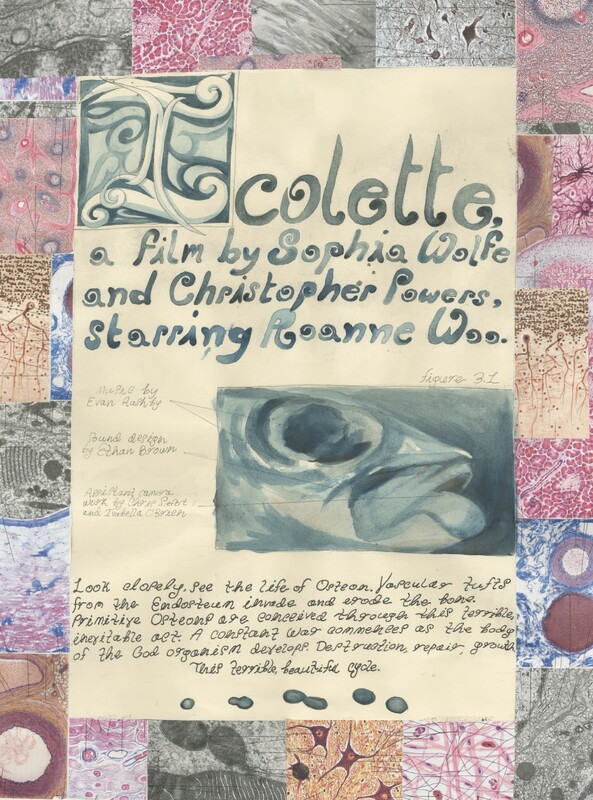 Icolette,
a film by Sophia Wolfe
and Christopher Powers,
starring Roanne Woo.
figure 3.1
Music by
Evan
Sound design
by Ethan Brown
Assistant camera
work by Chris
and Isabella O'Brien
Look closely, see the life of Osteon. Vascular tufts
from the Endosteum invade and erode the bone.
Primitive Osteons are conceived through this terrible,
inevitable act. A constant war commences as the body
of the God organism develops. Destruction, repair, growth.
This terrible, beautiful cycle.